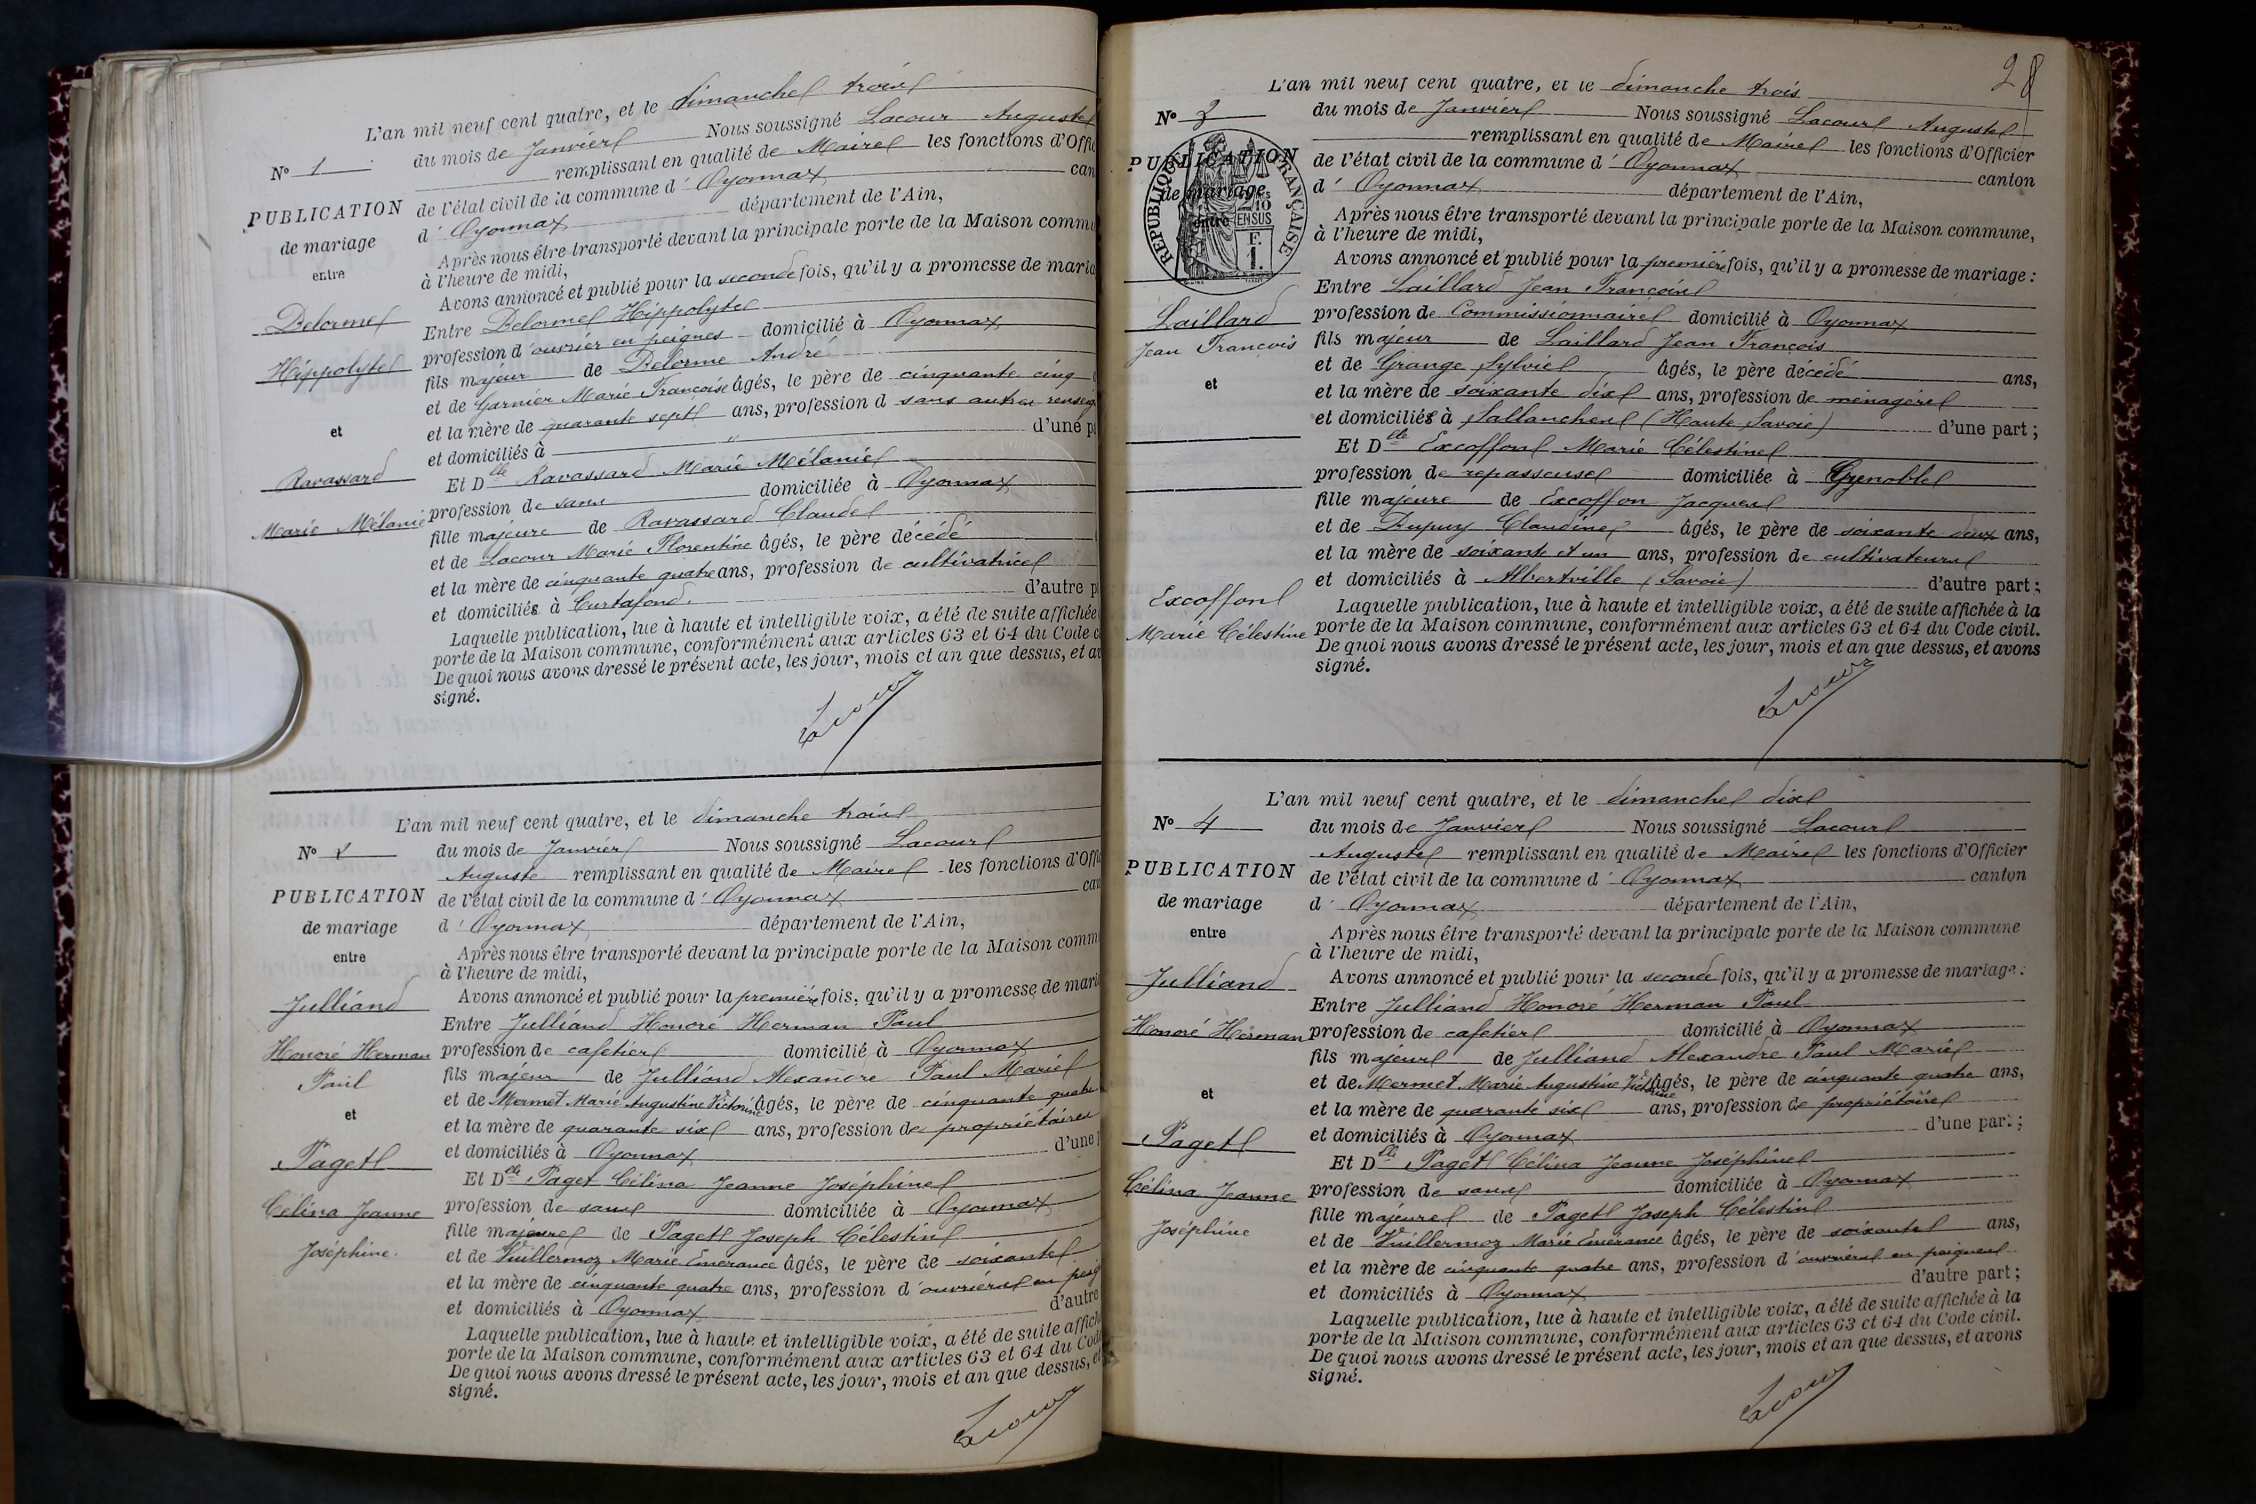 L'an mil neuf cent quatre, et le dimanche trois
N° 1
du mois de Janvier Nous soussigné Lacour Auguste
remplissant en qualité de Maire les fonctions d'Offic
de l'état civil de la commune d' Oyonnax can
PUBLICATION
de mariage
entre
d' Oyonnax département de l'Ain,
Après nous être transporté devant la principale porte de la Maison commu
à l'heure de midi,
Avons annoncé et publié pour la seconde fois, qu'il y a promesse de maria
Delorme
Hippolyte
et
Ravassard
Marie Mélanie
Entre Delorme Hippolyte
profession d'ouvrier en peignes domicilié à Oyonnax
fils majeur de Delorme André
et de Garnier Marie Françoise âgés, le père de cinquante cinq
et la mère de quarante sept ans, profession d sans autres renseig
et domiciliés à " d'une pa
Et Dlle Ravassard Marie Mélanie
profession de sans domiciliée à Oyonnax
fille majeure de Ravassard Claude
et de Lacour Marie Florentine âgés, le père décédé
et la mère de cinquante quatre ans, profession de cultivatrice
et domiciliés à Curtafond. d'autre p
Laquelle publication, lue à haute et intelligible voix, a été de suite affichée
porte de la Maison commune, conformément aux articles 63 et 64 du Code c
De quoi nous avons dressé le présent acte, les jour, mois et an que dessus, et av
signé.
Lacour
L'an mil neuf cent quatre, et le dimanche trois
N° 2
du mois de Janvier Nous soussigné Lacour
Auguste remplissant en qualité de Maire les fonctions d'Offic
PUBLICATION
de mariage
entre
de l'état civil de la commune d' Oyonnax can
d' Oyonnax département de l'Ain,
Après nous être transporté devant la principale porte de la Maison comm
à l'heure de midi,
Avons annoncé et publié pour la première fois, qu'il y a promesse de maria
Julliand
Honoré Herman
Paul
et
Paget
Célina Jeanne
Joséphine.
Entre Julliand Honoré Herman Paul
profession de cafetier domicilié à Oyonnax
fils majeur de Julliand Alexandre Paul Marie
et de Mermet Marie Augustine Victorine âgés, le père de cinquante quatre
et la mère de quarante six ans, profession de propriétaires
et domiciliés à Oyonnax d'une p
Et Dlle Paget Célina Jeanne Joséphine
profession de sans domiciliée à Oyonnax
fille majeure de Paget Joseph Célestin
et de Vuillermoz Marie Emérance âgés, le père de soixante
et la mère de cinquante quatre ans, profession d'ouvriers en peig
et domiciliés à Oyonnax d'autre
Laquelle publication, lue à haute et intelligible voix, a été de suite affich
porte de la Maison commune, conformément aux articles 63 et 64 du Code
De quoi nous avons dressé le présent acte, les jour, mois et an que dessus, et
signé.
Lacour
28
L'an mil neuf cent quatre, et le dimanche trois
N° 3
du mois de Janvier Nous soussigné Lacour Auguste
remplissant en qualité de Maire les fonctions d'Officier
PUBLICATION
de mariage
entre
RÉPUBLIQUE FRANÇAISE
2/10 EN SUS
F. 1.
de l'état civil de la commune d' Oyonnax canton
d' Oyonnax département de l'Ain,
Après nous être transporté devant la principale porte de la Maison commune,
à l'heure de midi,
Avons annoncé et publié pour la première fois, qu'il y a promesse de mariage :
Laillard
Jean François
et
Excoffon
Marie Célestine
Entre Laillard Jean François
profession de Commissionnaire domicilié à Oyonnax
fils majeur de Laillard Jean François
et de Grange Sylvie âgés, le père décédé ans,
et la mère de soixante dix ans, profession de ménagère
et domiciliés à Sallanches (Haute Savoie) d'une part ;
Et Dlle Excoffon Marie Célestine
profession de repasseuse domiciliée à Grenoble
fille majeure de Excoffon Jacques
et de Dupuy Claudine âgés, le père de soixante deux ans,
et la mère de soixante et un ans, profession de cultivateurs
et domiciliés à Albertville (Savoie) d'autre part ;
Laquelle publication, lue à haute et intelligible voix, a été de suite affichée à la
porte de la Maison commune, conformément aux articles 63 et 64 du Code civil.
De quoi nous avons dressé le présent acte, les jour, mois et an que dessus, et avons
signé.
Lacour
L'an mil neuf cent quatre, et le dimanche dix
N° 4
du mois de Janvier Nous soussigné Lacour
Auguste remplissant en qualité de Maire les fonctions d'Officier
PUBLICATION
de mariage
entre
de l'état civil de la commune d' Oyonnax canton
d' Oyonnax département de l'Ain,
Après nous être transporté devant la principale porte de la Maison commune
à l'heure de midi,
Avons annoncé et publié pour la seconde fois, qu'il y a promesse de mariage :
Julliand
Honoré Herman
et
Paget
Célina Jeanne
Joséphine
Entre Julliand Honoré Herman Paul
profession de cafetier domicilié à Oyonnax
fils majeur de Julliand Alexandre Paul Marie
et de Mermet Marie Augustine Victorine âgés, le père de cinquante quatre ans,
et la mère de quarante six ans, profession de propriétaire
et domiciliés à Oyonnax d'une part ;
Et Dlle Paget Célina Jeanne Joséphine
profession de sans domiciliée à Oyonnax
fille majeure de Paget Joseph Célestin
et de Vuillermoz Marie Emérance âgés, le père de soixante ans,
et la mère de cinquante quatre ans, profession d'ouvriers en peignes
et domiciliés à Oyonnax d'autre part ;
Laquelle publication, lue à haute et intelligible voix, a été de suite affichée à la
porte de la Maison commune, conformément aux articles 63 et 64 du Code civil.
De quoi nous avons dressé le présent acte, les jour, mois et an que dessus, et avons
signé.
Lacour